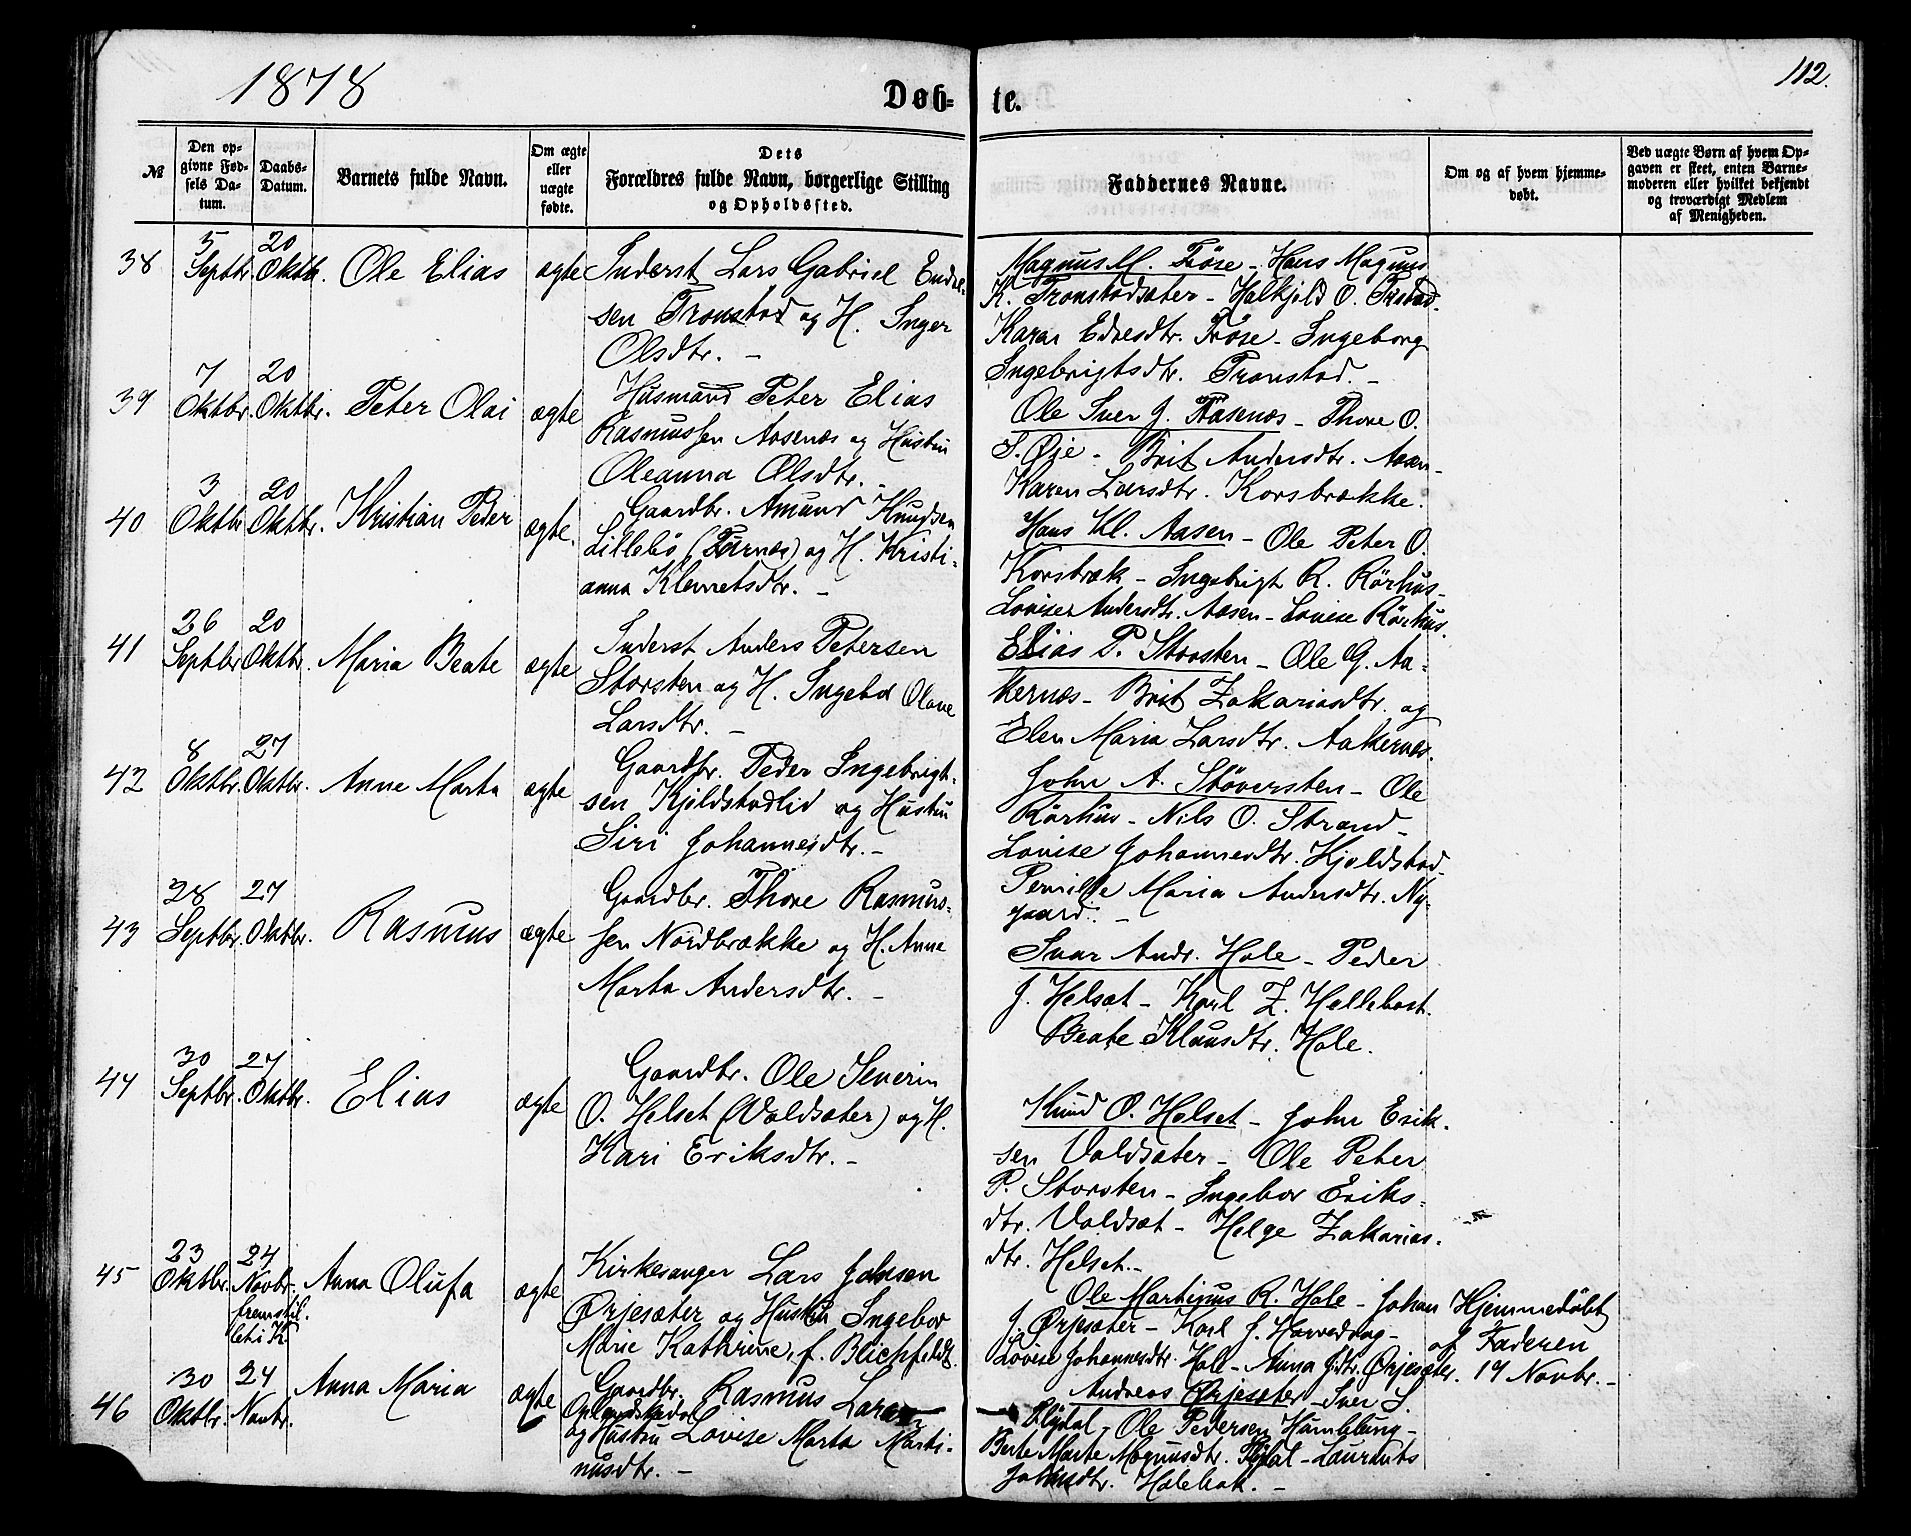 1878
Døb-
te.
112.
№
Den op-
givne Fød-
sels Da-
tum.
Daabs-
Datum.
Barnets fulde Navn.
Om ægte
eller
uægte
fødte.
Dets
Forældres fulde Navn, borgerlige Stilling
og Opholdssted.
Faddernes Navne.
Om og af hvem hjemme-
døbt.
Ved uægte Børn af hvem Op-
gaven er skeet, enten Barne-
moderen eller hvilket bekjendt
og troværdigt Medlem
af Menigheden.
38
5
Septbr.
20
Oktbr.
Ole Elias
ægte
Inderst Lars Gabriel Endre-
sen Tronstad og H. Inger
Olsdtr. -
Magnus M. Frøse - Hans Magnus
K. Tronstadsæter - Halkjeld O.
Karen Frøse - Ingeborg
Ingebrigtsdtr. Tronstad. -
39
7
Oktbr.
20
Oktbr.
Peter Olai
ægte
Husmand Peter Elias
Rasmussen Aasenæs og Hustru
Oleanna Olsdtr. -
Ole Iver J. Aasenæs - Thore O.
S. Øie - Brit Andersdtr. Aasen -
Karen Larsdtr. Korsbrække.
40
3
Oktbr
20
Oktbr.
Kristian Peder
ægte.
Gaardbr. Amund Knudsen
Lillebø (Furnæs) og H. Kristi-
anna Klemetsdtr. -
Hans Kl. Aasen - Ole Peter O.
Korsbræk - Ingebrigt R. Rørhus -
Lovise Andersdtr. Aasen - Lovise Rørhus.
41
26
Septbr
20
Oktbr.
Maria Beate
ægte
Inderst Anders Petersen
Storsten og H. Ingebor Olave
Larsdtr. -
Elias P. Storsten - Ole G. Aa-
kernæs - Brit Zakariasdtr. og
Elen Maria Larsdtr. Aakernæs.
42
8
Oktbr.
27
Oktbr.
Anne Marta
ægte
Gaardbr. Peder Ingebrigt-
sen Kjeldstadlid og Hustru
Siri Johannesdtr. -
John A. Støversten - Ole
Rørhus - Nils O. Strand -
Lovise Johannesdtr. Kjeldstad -
Pernille Maria Andersdtr. Ny-
gaard. -
43
28
Septbr.
27
Oktbr.
Rasmus
ægte
Gaardbr. Thore Rasmus-
sen Nordbrække og H. Anne
Marta Andersdtr. -
Ivar Andr. Hole - Peder
J. Helset - Karl Z. Hellebost.
Beate Klausdtr. Hole.
44
30
Septbr.
27
Oktbr.
Elias
ægte
Gaardbr. Ole Severin
O. Helset (Valdsæter) og H.
Kari Eriksdtr. -
Knud O. Helset - John Erik-
sen Valdsæter - Ole Peter
P. Storsten - Ingebor Eriks-
dtr. Valdsæt - Helge Zakarias-
dtr. Helset. -
45
23
Oktbr.
24
Novbr.
fremstil-
let i K
Anna Olufa
ægte
Kirkesanger Lars Johnsen
Ørjesæter og Hustru Ingebor
Marie Kathrine, f. Blichfeldt.
Ole Martinus R. Hole - Johan
J. Ørjesæter - Karl J.
Lovise Johannesdtr. Hole - Anna Jdtr. Ørjesæter.
Hjemmedøbt
af Faderen
17 Novbr. -
46
30
Oktbr.
24
Novbr.
Anna Maria
ægte
Gaardbr. Rasmus Larsen
og Hustru Lovise Marta Marti-
nusdtr. -
Andreas Ørjesæter - Iver S.
Flydal - Ole Pedersen -
Berte Marte Magnusdtr. Flydal -
Johnsdtr. Holebak. -